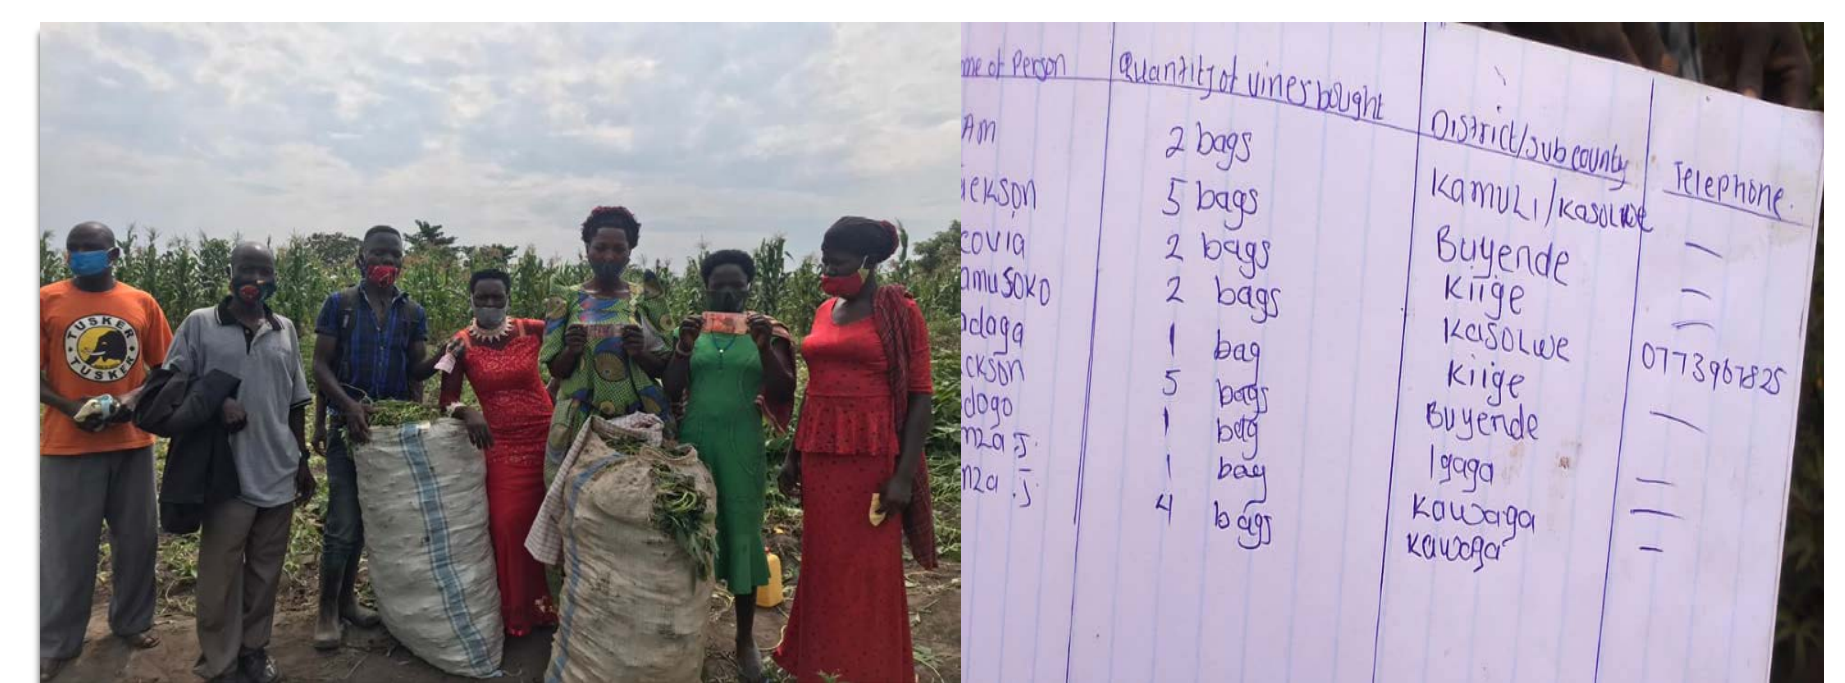 TUSKER
TUSKER
me of Person Quantity of vines bought District/subcounty Telephone.
Am 2 bags Kamuli/Kasolwe —
ckson 5 bags Buyende —
covia 2 bags Kiige —
amusoko 2 bags Kasolwe 0773967825
daga 1 bag Kiige —
ckson 5 bags Buyende
dogo 1 bag Igaga —
nza J. 1 bag Kawaga —
nza .J 4 bags Kawaga —